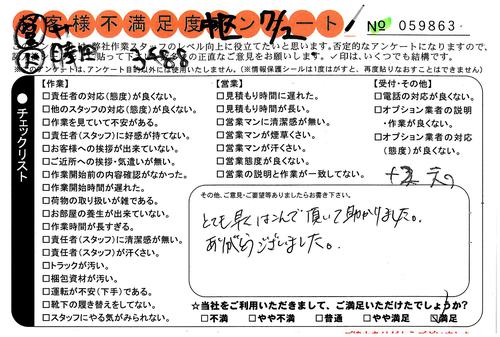 お客様不満足度アンケート
7/2
No 059863
3588
弊社作業スタッフのレベル向上に役立てたいと思います。否定的なアンケートになりますので、
の正直なご意見をお願いします。✓印は、いくつでも結構です。
※このアンケートは、アンケート目的以外には使用いたしません。(※情報保護シールは1度はがすと、再度貼りなおすことはできません)
●チェックリスト
【作業】
□責任者の対応(態度)が良くない。
□他のスタッフの対応(態度)が良くない。
□作業を見ていて不安がある。
□責任者(スタッフ)に好感が持てない。
□お客様への挨拶が出来ていない。
□ご近所への挨拶・気遣いが無い。
□作業開始前の内容確認がなかった。
□作業開始時間が遅れた。
□荷物の取り扱いが雑である。
□お部屋の養生が出来ていない。
□作業時間が長すぎる。
□責任者(スタッフ)に清潔感が無い。
□責任者(スタッフ)が汗くさい。
□トラックが汚い。
□梱包資材が汚い。
□運転が不安(下手)である。
□靴下の履き替えをしてない。
□スタッフにやる気がみられない。
【営業】
□見積もり時間に遅れた。
□見積もり時間が長い。
□営業マンに清潔感が無い。
□営業マンが煙草くさい。
□営業マンが汗くさい。
□営業態度が良くない。
□営業の説明と作業が一致してない。
【受付・その他】
□電話の対応が良くない。
□オプション業者の説明
・作業が良くない。
□オプション業者の対応
(態度)が良くない。
その他、ご意見・ご要望等ありましたらお書き下さい。
とても早くはこんで頂いて助かりました。
ありがとうございました。
☆当社をご利用いただきまして、ご満足いただけたでしょうか?
□不満 □やや不満 □普通 □やや満足 ☑満足